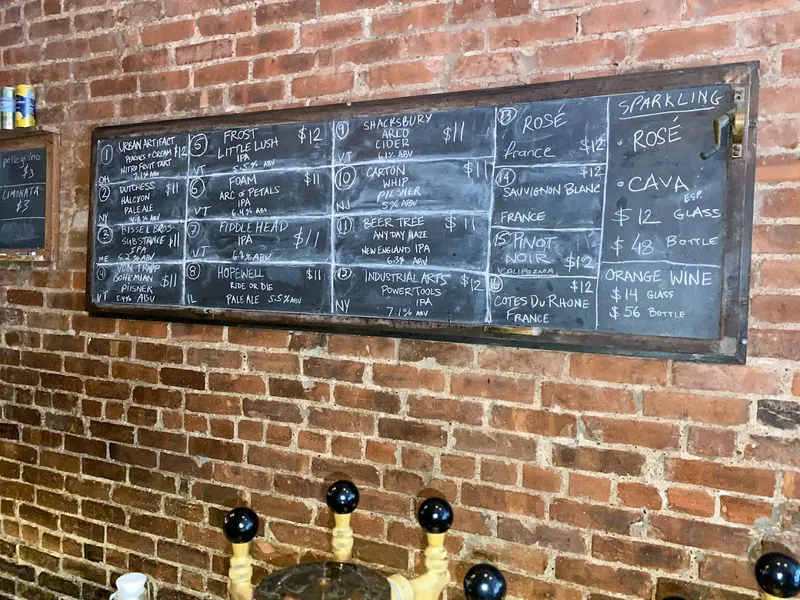 pellegrino
$3
LIMONATA
$3
1 URBAN ARTIFACT
PEACHES + CREAM $12
NITRO FRUIT TART
7.1% ABV
OH
2 DUTCHESS $11
HALCYON
PALE ALE
NY
3 BISSEL BROS
SUBSTANCE $11
IPA
ME 6.2% ABV
4 VON TRAPP $11
BOHEMIAN
PILSNER
VT 5.4% ABV
5 FROST $12
LITTLE LUSH
IPA
VT 5.5% ABV
6 FOAM $11
ARC OF PETALS
IPA
VT 6.4% ABV
7 FIDDLEHEAD $11
IPA
VT 6.2% ABV
8 HOPEWELL $11
RIDE OR DIE
IL PALE ALE 5.5% ABV
9 SHACKSBURY $11
ARLO
CIDER
VT 6.1% ABV
10 CARTON $11
WHIP
PILSNER
NJ 5% ABV
11 BEER TREE $11
ANY DAY HAZE
NEW ENGLAND IPA
6.3% ABV
12 INDUSTRIAL ARTS $12
POWER TOOLS
IPA
NY 7.1% ABV
13 ROSÉ
france $12
14 $12
SAUVIGNON BLANC
FRANCE
15 PINOT
NOIR $12
CALIFORNIA
16 $12
COTES DU RHONE
FRANCE
SPARKLING
• ROSÉ
• CAVA
ESP.
$12 GLASS
$48 BOTTLE
ORANGE WINE
$14 GLASS
$56 BOTTLE